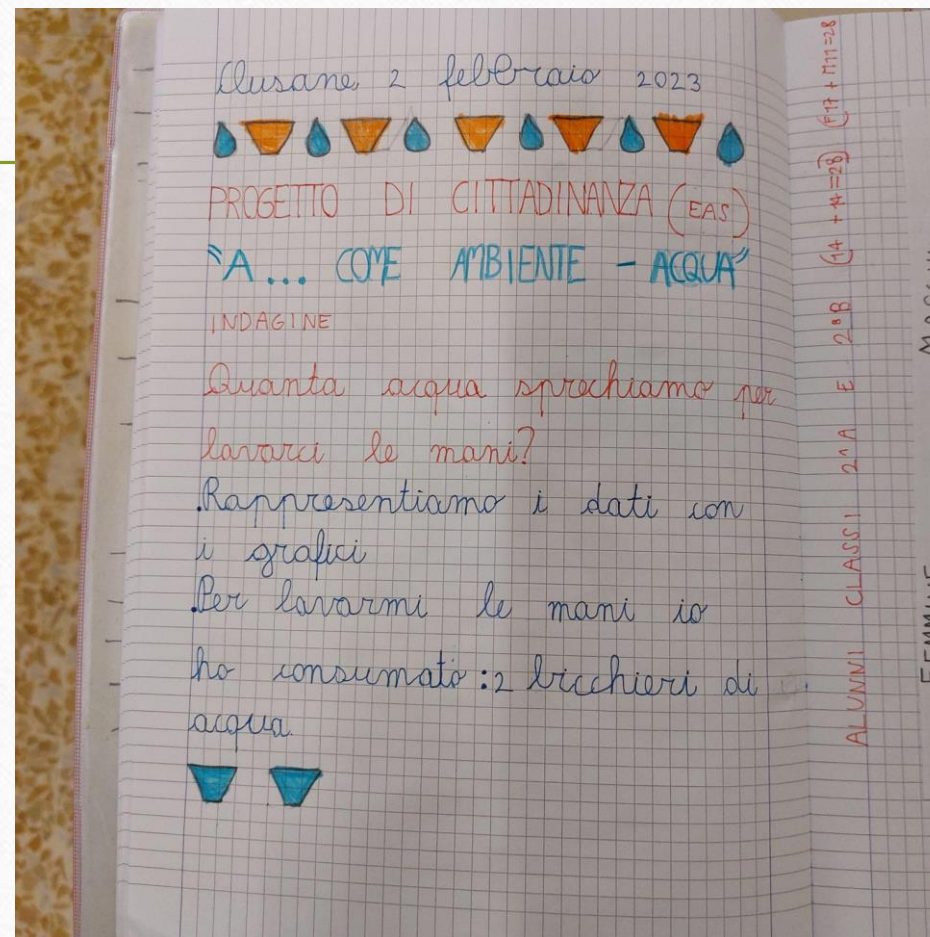 Clusane, 2 febbraio 2023
PROGETTO DI CITTADINANZA (EAS)
"A... COME AMBIENTE - ACQUA"
INDAGINE
Quanta acqua sprechiamo per
lavarci le mani?
.Rappresentiamo i dati con
i grafici
.Per lavarmi le mani io
ho consumato: 2 bicchieri di
acqua.
ALUNNI CLASSI 2^A E 2^B (14 + 14 = 28) (F17 + M11 = 28)